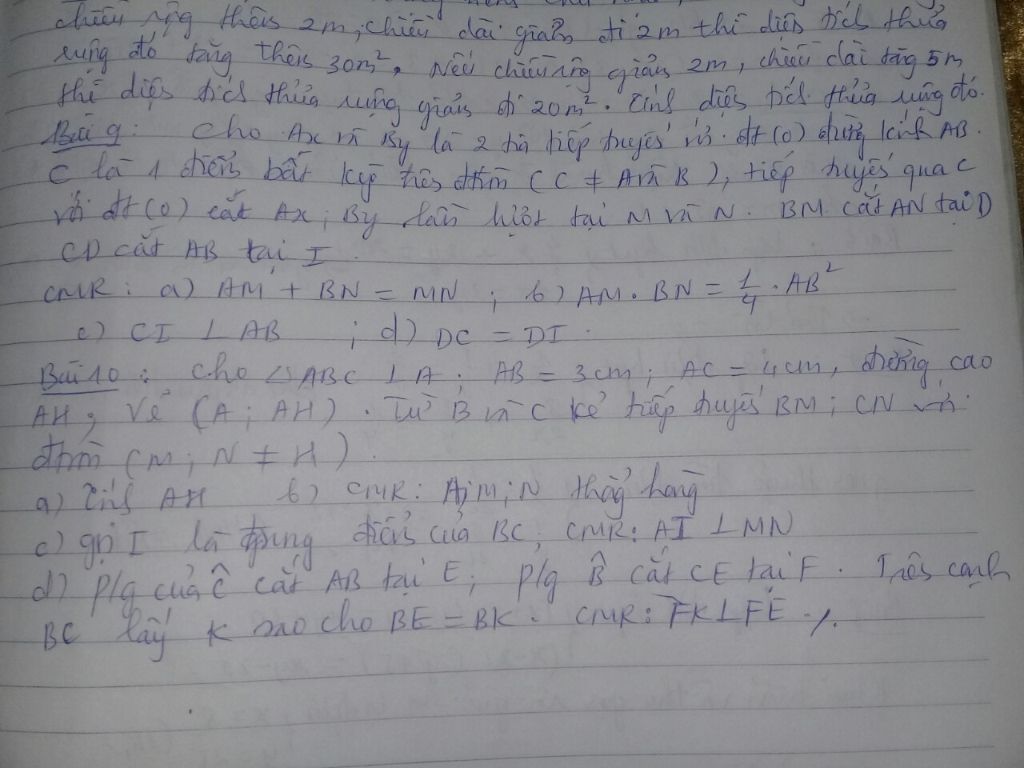 chiều rộng thêm 2m, chiều dài giảm đi 2m thì diện tích thửa
ruộng đó tăng thêm 30m². Nếu chiều rộng giảm 2m, chiều dài tăng 5m
thì diện tích thửa ruộng giảm đi 20m². Tính diện tích thửa ruộng đó.
Bài 9: Cho Ax và By là 2 tia tiếp tuyến với đt(O) đường kính AB.
C là 1 điểm bất kỳ trên đtròn (C ≠ A và B), tiếp tuyến qua C
với đt(O) cắt Ax; By lần lượt tại M và N. BM cắt AN tại D
CD cắt AB tại I.
CMR: a) AM + BN = MN ; b) AM.BN = 1/4 . AB²
c) CI ⊥ AB ; d) DC = DI.
Bài 10: Cho △ABC ⊥ A; AB = 3cm; AC = 4cm, đường cao
AH; Vẽ (A; AH). Từ B và C kẻ tiếp tuyến BM; CN với
đtròn (M; N ≠ H).
a) Tính AH b) CMR: A;M;N thẳng hàng
c) gọi I là trung điểm của BC; CMR: AI ⊥ MN
d) P/g của Ĉ cắt AB tại E; p/g B̂ cắt CE tại F. Trên cạnh
BC lấy K sao cho BE = BK. CMR: FK ⊥ FE ./.